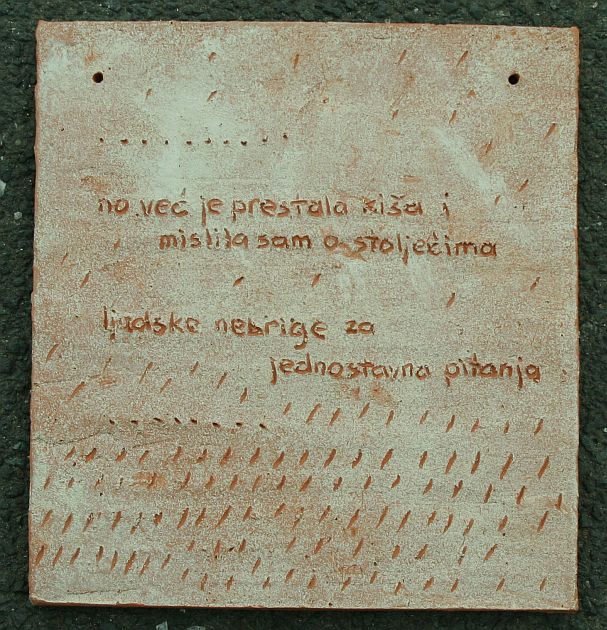 ...........
no već je prestala kiša i
mislila sam o stoljećima
ljudske nebrige za
jednostavna pitanja
.........